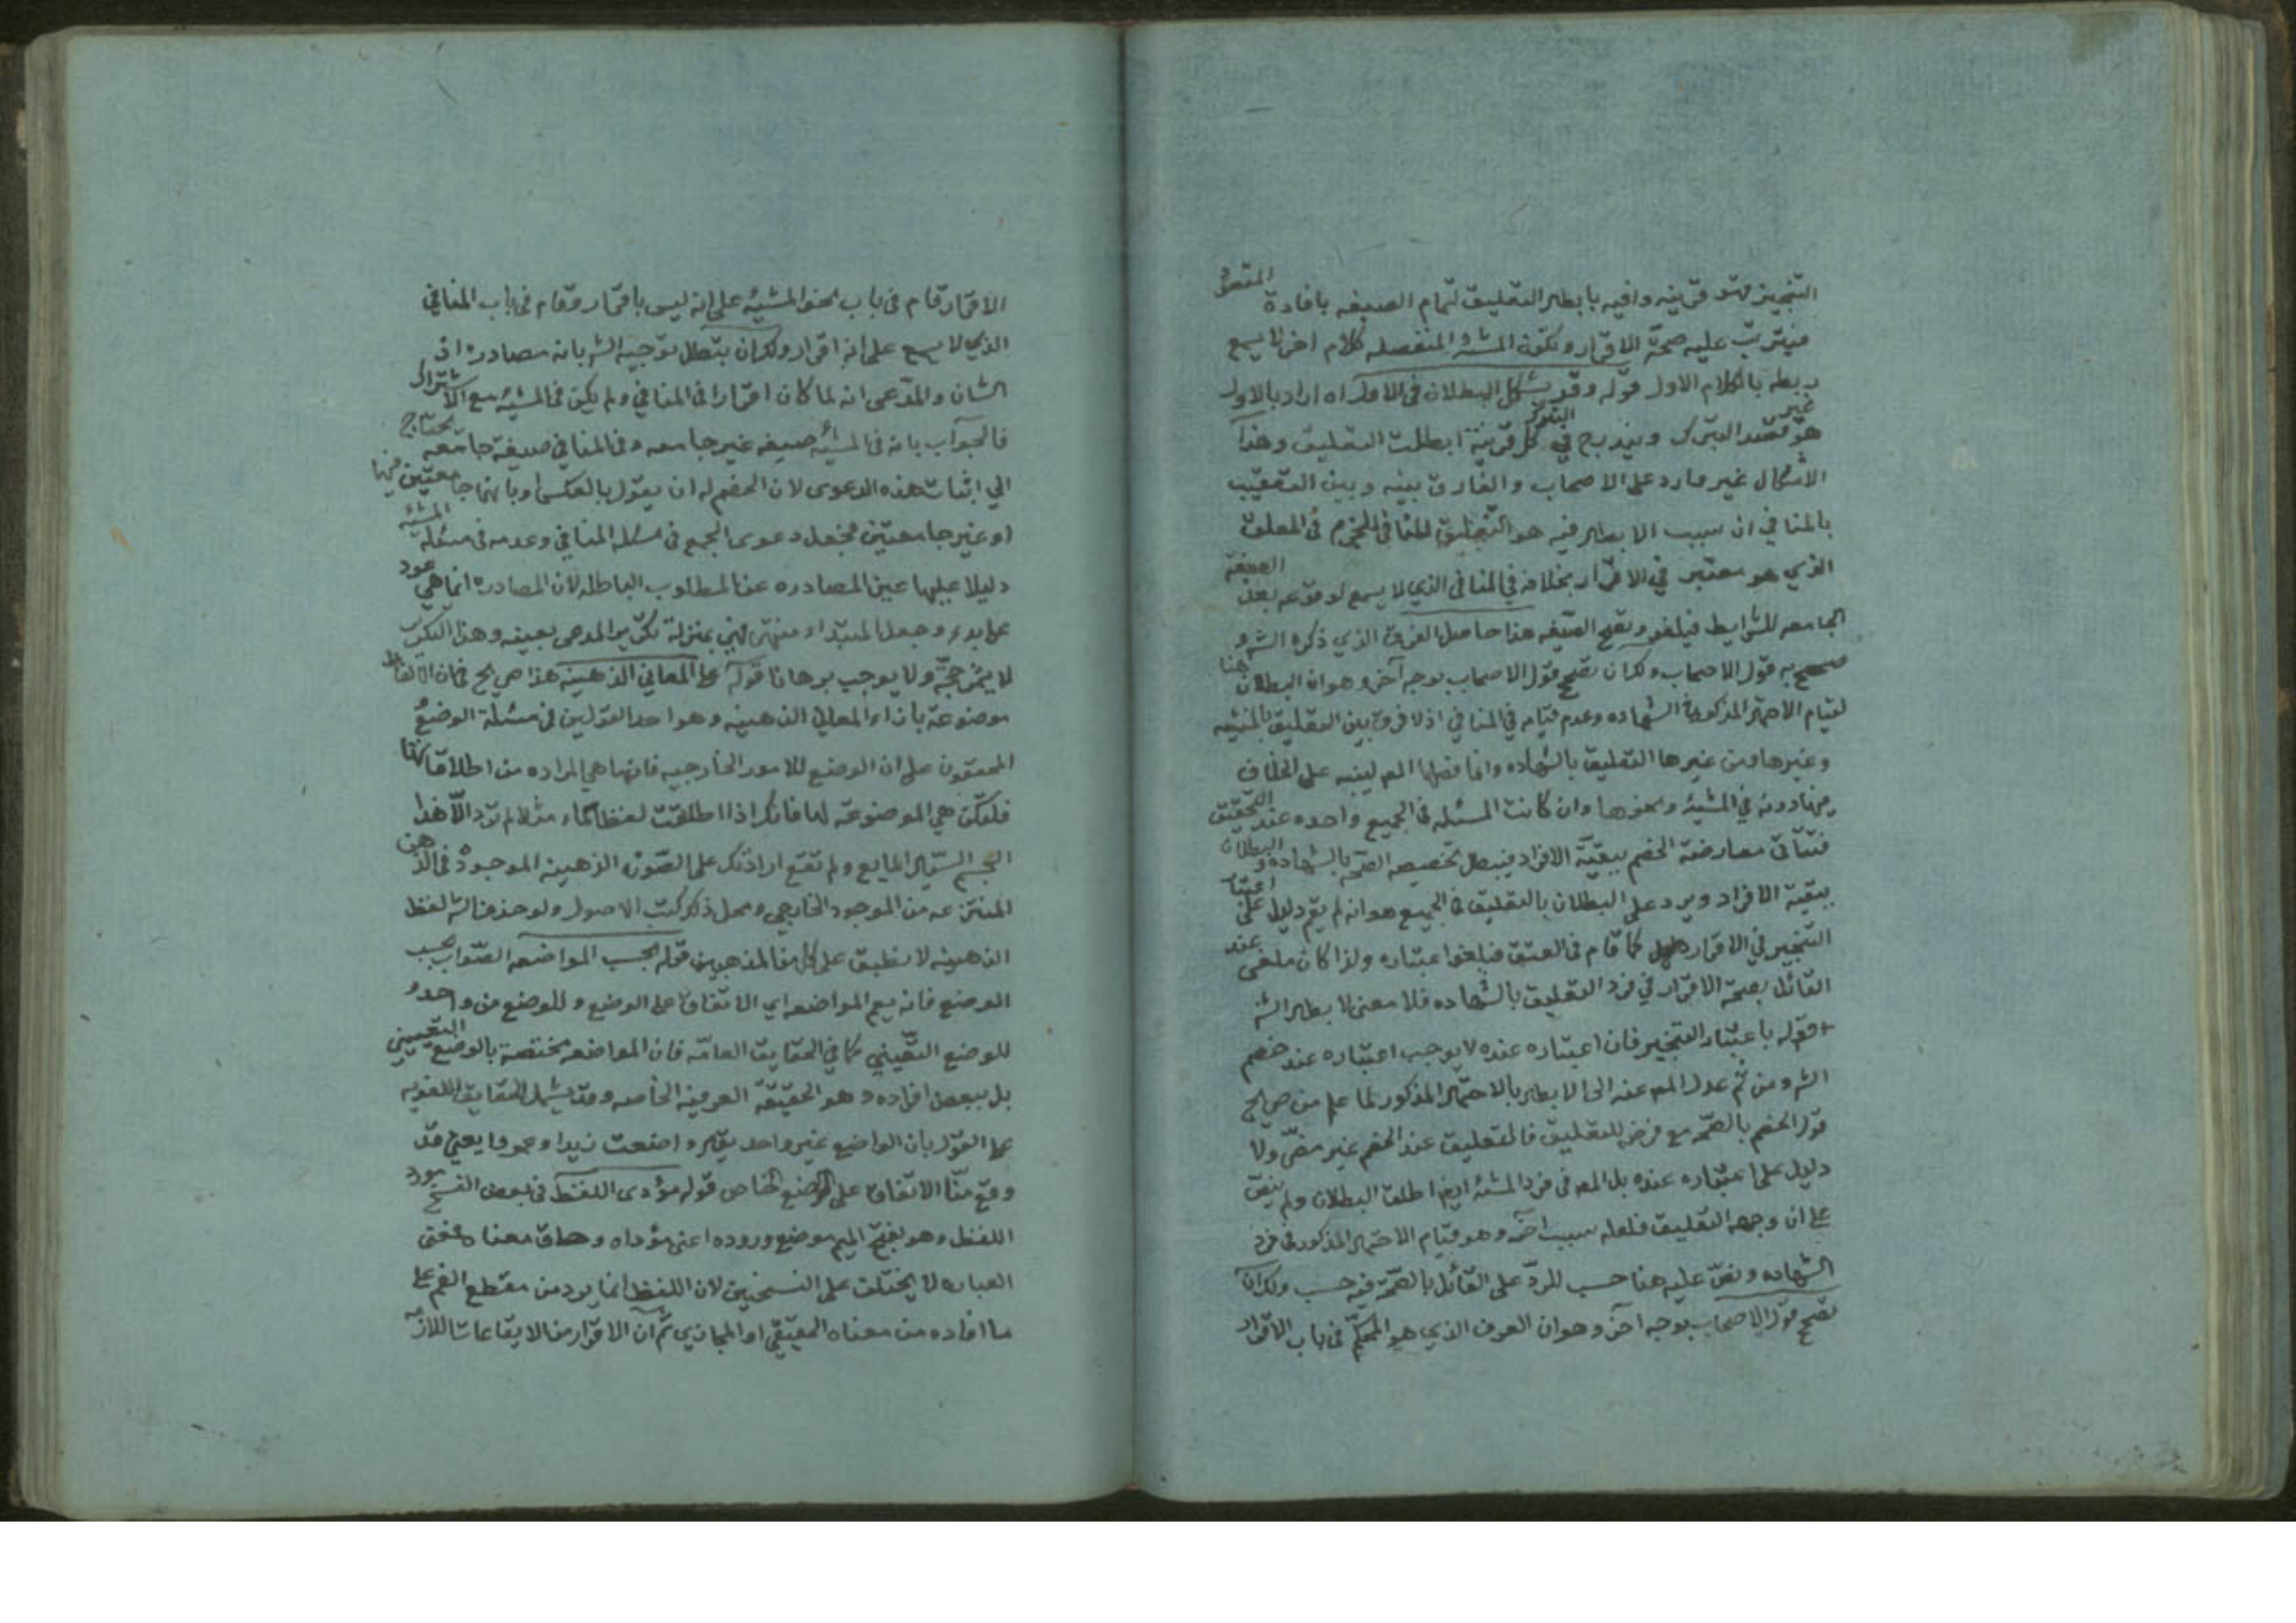 التنجيز فهو قرينه وافيه بابطال التعليق لتمام الصيغه بافادة المقصود
فيترتب عليه صحة الاقرار ولكون المشية المنفصله كلام اخر لا يسع
ربطه بالكلام الاول قوله وقد يشكل البطلان في الاول اه اراد بالاول
هو غير قصد التبرك ويندرج في غير التبرك كل قرينة ابطلت التعليق وهذا
الاشكال غير وارد على الاصحاب والفارق بينه وبين التعقيب
بالمنافي ان سبب الابطال فيه هو التعليق المنافي للجزم في المعلق
الذي هو معتبر في الاقرار بخلافه في المنافي الذي لا يسمع لوقوعه بعد الصيغة
الجامعه للشرايط فيلغو وتصح الصيغه هذا حاصل الفرق الذي ذكره الش و
صحح به قول الاصحاب ولك ان تصحح قول الاصحاب بوجه آخر وهو ان البطلان هنا
لقيام الاحتمال المذكور في الشهاده وعدم قيامه في المنافي اذ لا فرق بين التعليق بالمشيه
وغيرها ومن غيرها التعليق بالشهاده وانما فصلها المص لينبه على الخلاف
فيها دونه في المشية ونحوها وان كانت المسئله في الجميع واحده عند التحقيق
فتتأتى معارضة الخصم ببقية الافراد فيبطل تخصيصه الصحه بالشهاده و البطلان
ببقية الافراد ويرد على البطلان بالتعليق في الجميع هو انه لم يقم دليل على اعتبار
التنجيز في الاقرار كما قام في العتق فيلغو اعتباره ولذا كان ملغى عند
القائل بصحة الاقرار في فرد التعليق بالشهاده فلا معنى لابطال الش
قوله باعتبار التنجيز فان اعتباره عنده لا يوجب اعتباره عند خصم
الش ومن ثم عدل المص عنه الى الابطال بالاحتمال المذكور لما علم من صريح
قول الخصم بالصحه مع فرض التعليق فالتعليق عند الخصم غير مضر ولا
دليل على اعتباره عنده بل المص في فرد المشية ايضا اطلق البطلان ولم ينص
على ان وجهه التعليق فلعله سبب اخر وهو قيام الاحتمال المذكور في فرد
الشهاده ونص عليه هنا حسب للرد على القائل بالصحة فيه حسب ولك ان
تصحح قول الاصحاب بوجه آخر وهو ان العرف الذي هو المحكم في باب الاقرار
الاقرار قام في باب نحو المشيه على انه ليس باقرار وقام في باب المنافي
الذي لا يسمع على انه اقرار ولك ان تبطل توجيه الش بانه مصادره اذ
الشان والمدعى انه لما كان اقرارا في المنافي ولم يكن في المشيه مع الاشتراك
فالجواب بانه في المشية صيغه غير جامعه وفي المنافي صيغة جامعه يحتاج
الى اثبات هذه الدعوى لان الخصم له ان يقول بالعكس او بانهما جامعتين فيهما
او غير جامعتين فنجعل دعوى الجمع في مسئله المنافي وعدمه في مسئله المشية
دليلا عليها عين المصادره عن المطلوب الباطله لان المصادره انما هي عود
على بدء وجعل المبتداء منتهى فهي بمنزلة تكرير المدعى بعينه وهذا التكرير
لا يثمر حجة ولا يوجب برهانا قوله على المعاني الذهنيه هذا صريح في ان الالفاظ
موضوعة بازاء المعاني الذهنيه وهو احد القولين في مسئلة الوضع و
المحققون على ان الوضع للامور الخارجيه فانها هي المراده من اطلاقاتها
فلتكن هي الموضوعة لها فانك اذا اطلقت لفظ الماء مثلا لم ترد الا هذا
الجسم السيال المايع ولم تقع ارادتك على الصورة الذهنيه الموجودة في الذهن
المنتزعه من الموجود الخارجي ومحل ذكر كتب الاصول ولو حذف الش لفظ
الذهنيه لانطبق على كل من المذهبين قوله بحسب المواضعه الصواب بحسب
الوضع فانه يعم المواضعه اي الاتفاق على الوضع وللوضع من واحد و
للوضع التعيني كما في الحقايق العامه فان المواضعه مختصة بالوضع التعييني
بل ببعض افراده وهو الحقيقة العرفيه الخاصه وقد يشمل الحقايق اللغويه
على القول بان الواضع غير واحد يقال واضعت زيدا وعمروا يعني قد
وقع منا الاتفاق على الوضع الخاص قوله مؤدى اللفظ في بعض النسخ مورد
اللفظ وهو بفتح الميم موضع وروده اعني مؤداه وحاق معناه فمعنى
العباره لا يختلف على النسختين لان اللفظ انما يرد من مقطع الفم على
ما افاده من معناه الحقيقي او المجازي ثم ان الاقرار من الايقاعات اللازمه